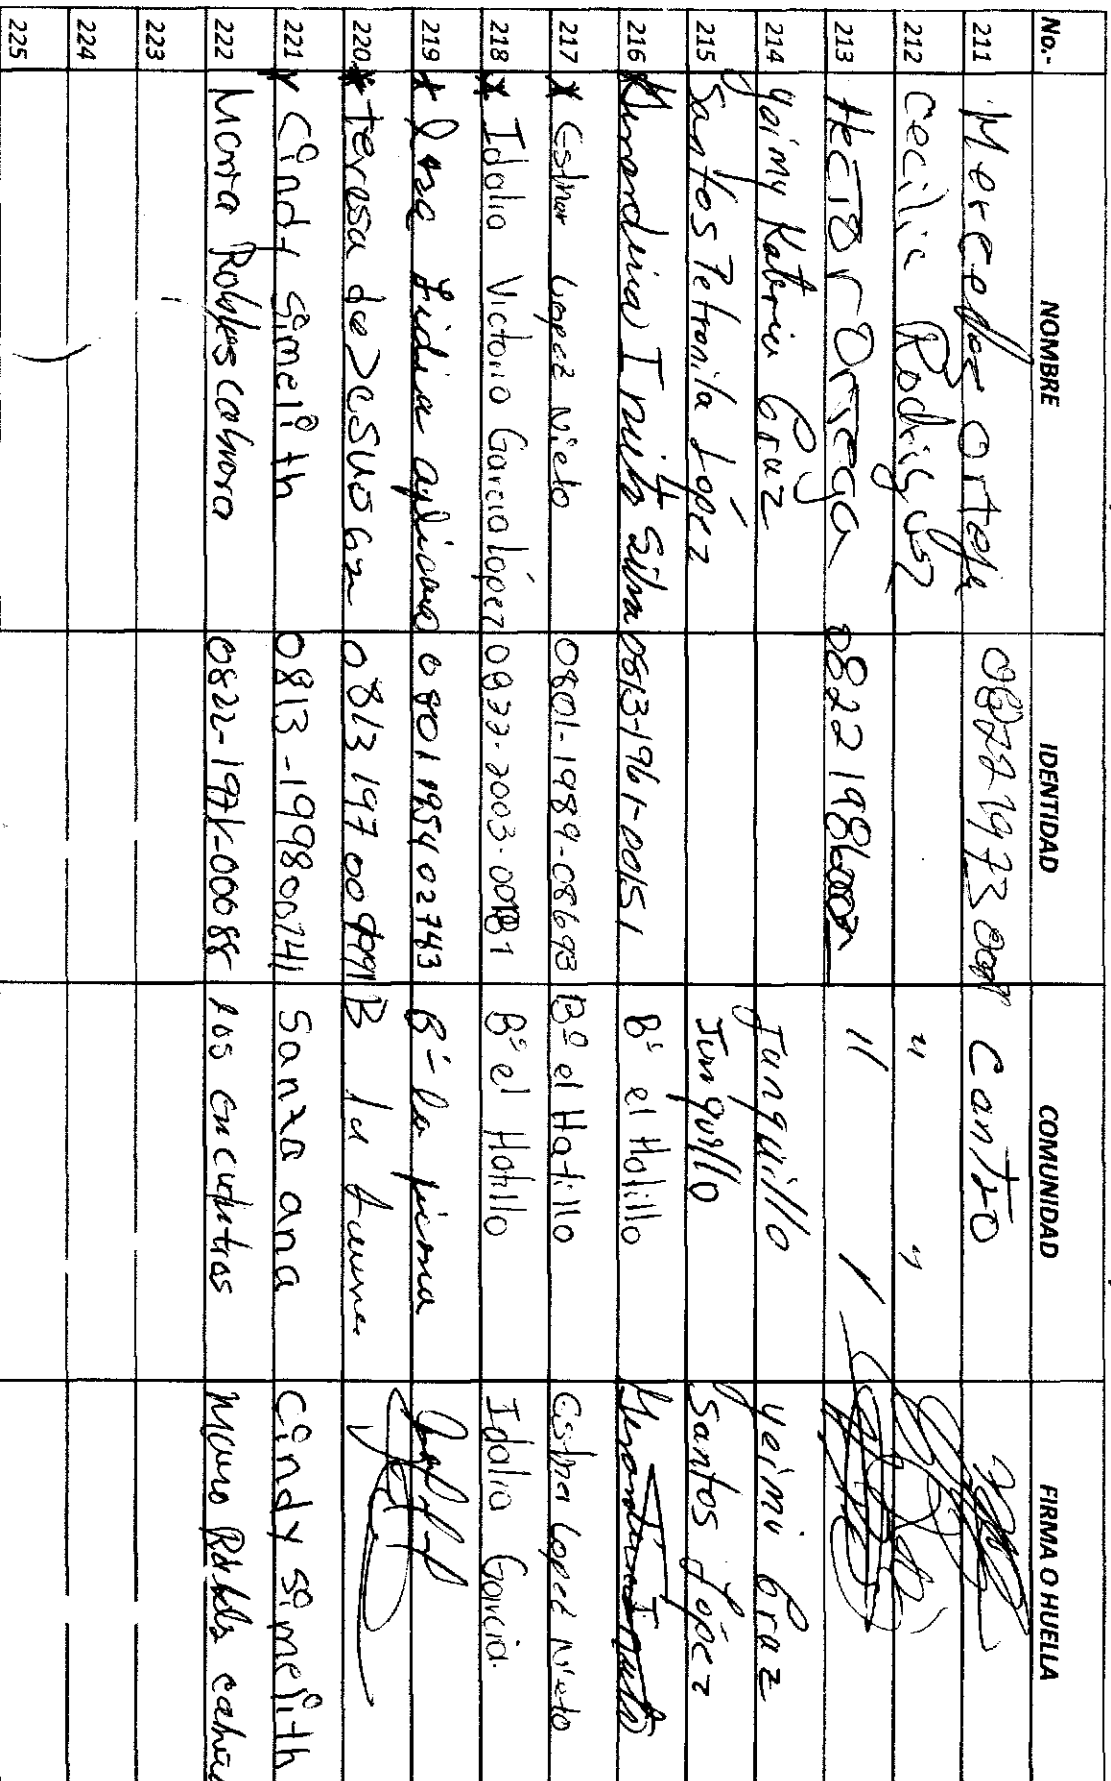 No.- NOMBRE IDENTIDAD COMUNIDAD FIRMA O HUELLA
211 Mercedes Ortega 08221973 Cantro
212 Cecilia Rodriguez " "
213 Hector Ortega 0822198 " "
214 Yoimy Katerin Cruz Junquillo yeimi Cruz
215 Santos Petronila López Junquillo Santos López
216 Silva 0813-1961-00151 B° el Hatillo
217 x Estner Lopez Nieto 0801-1989-08693 B° el Hatillo Estner Lopez Nieto
218 x Idalia Victoria Garcia López 0822-2003-00181 B° el Hatillo Idalia Garcia.
219 x Lidia 0801195402743 B° la
220 x teresa de Jesus 0813197009 B la
221 x Cindy Simelith 0813-199800241 Santa ana Cindy Simelith
222 Maria Robles Cabrera 0822-1971-00088 los encuentros
223
224
225